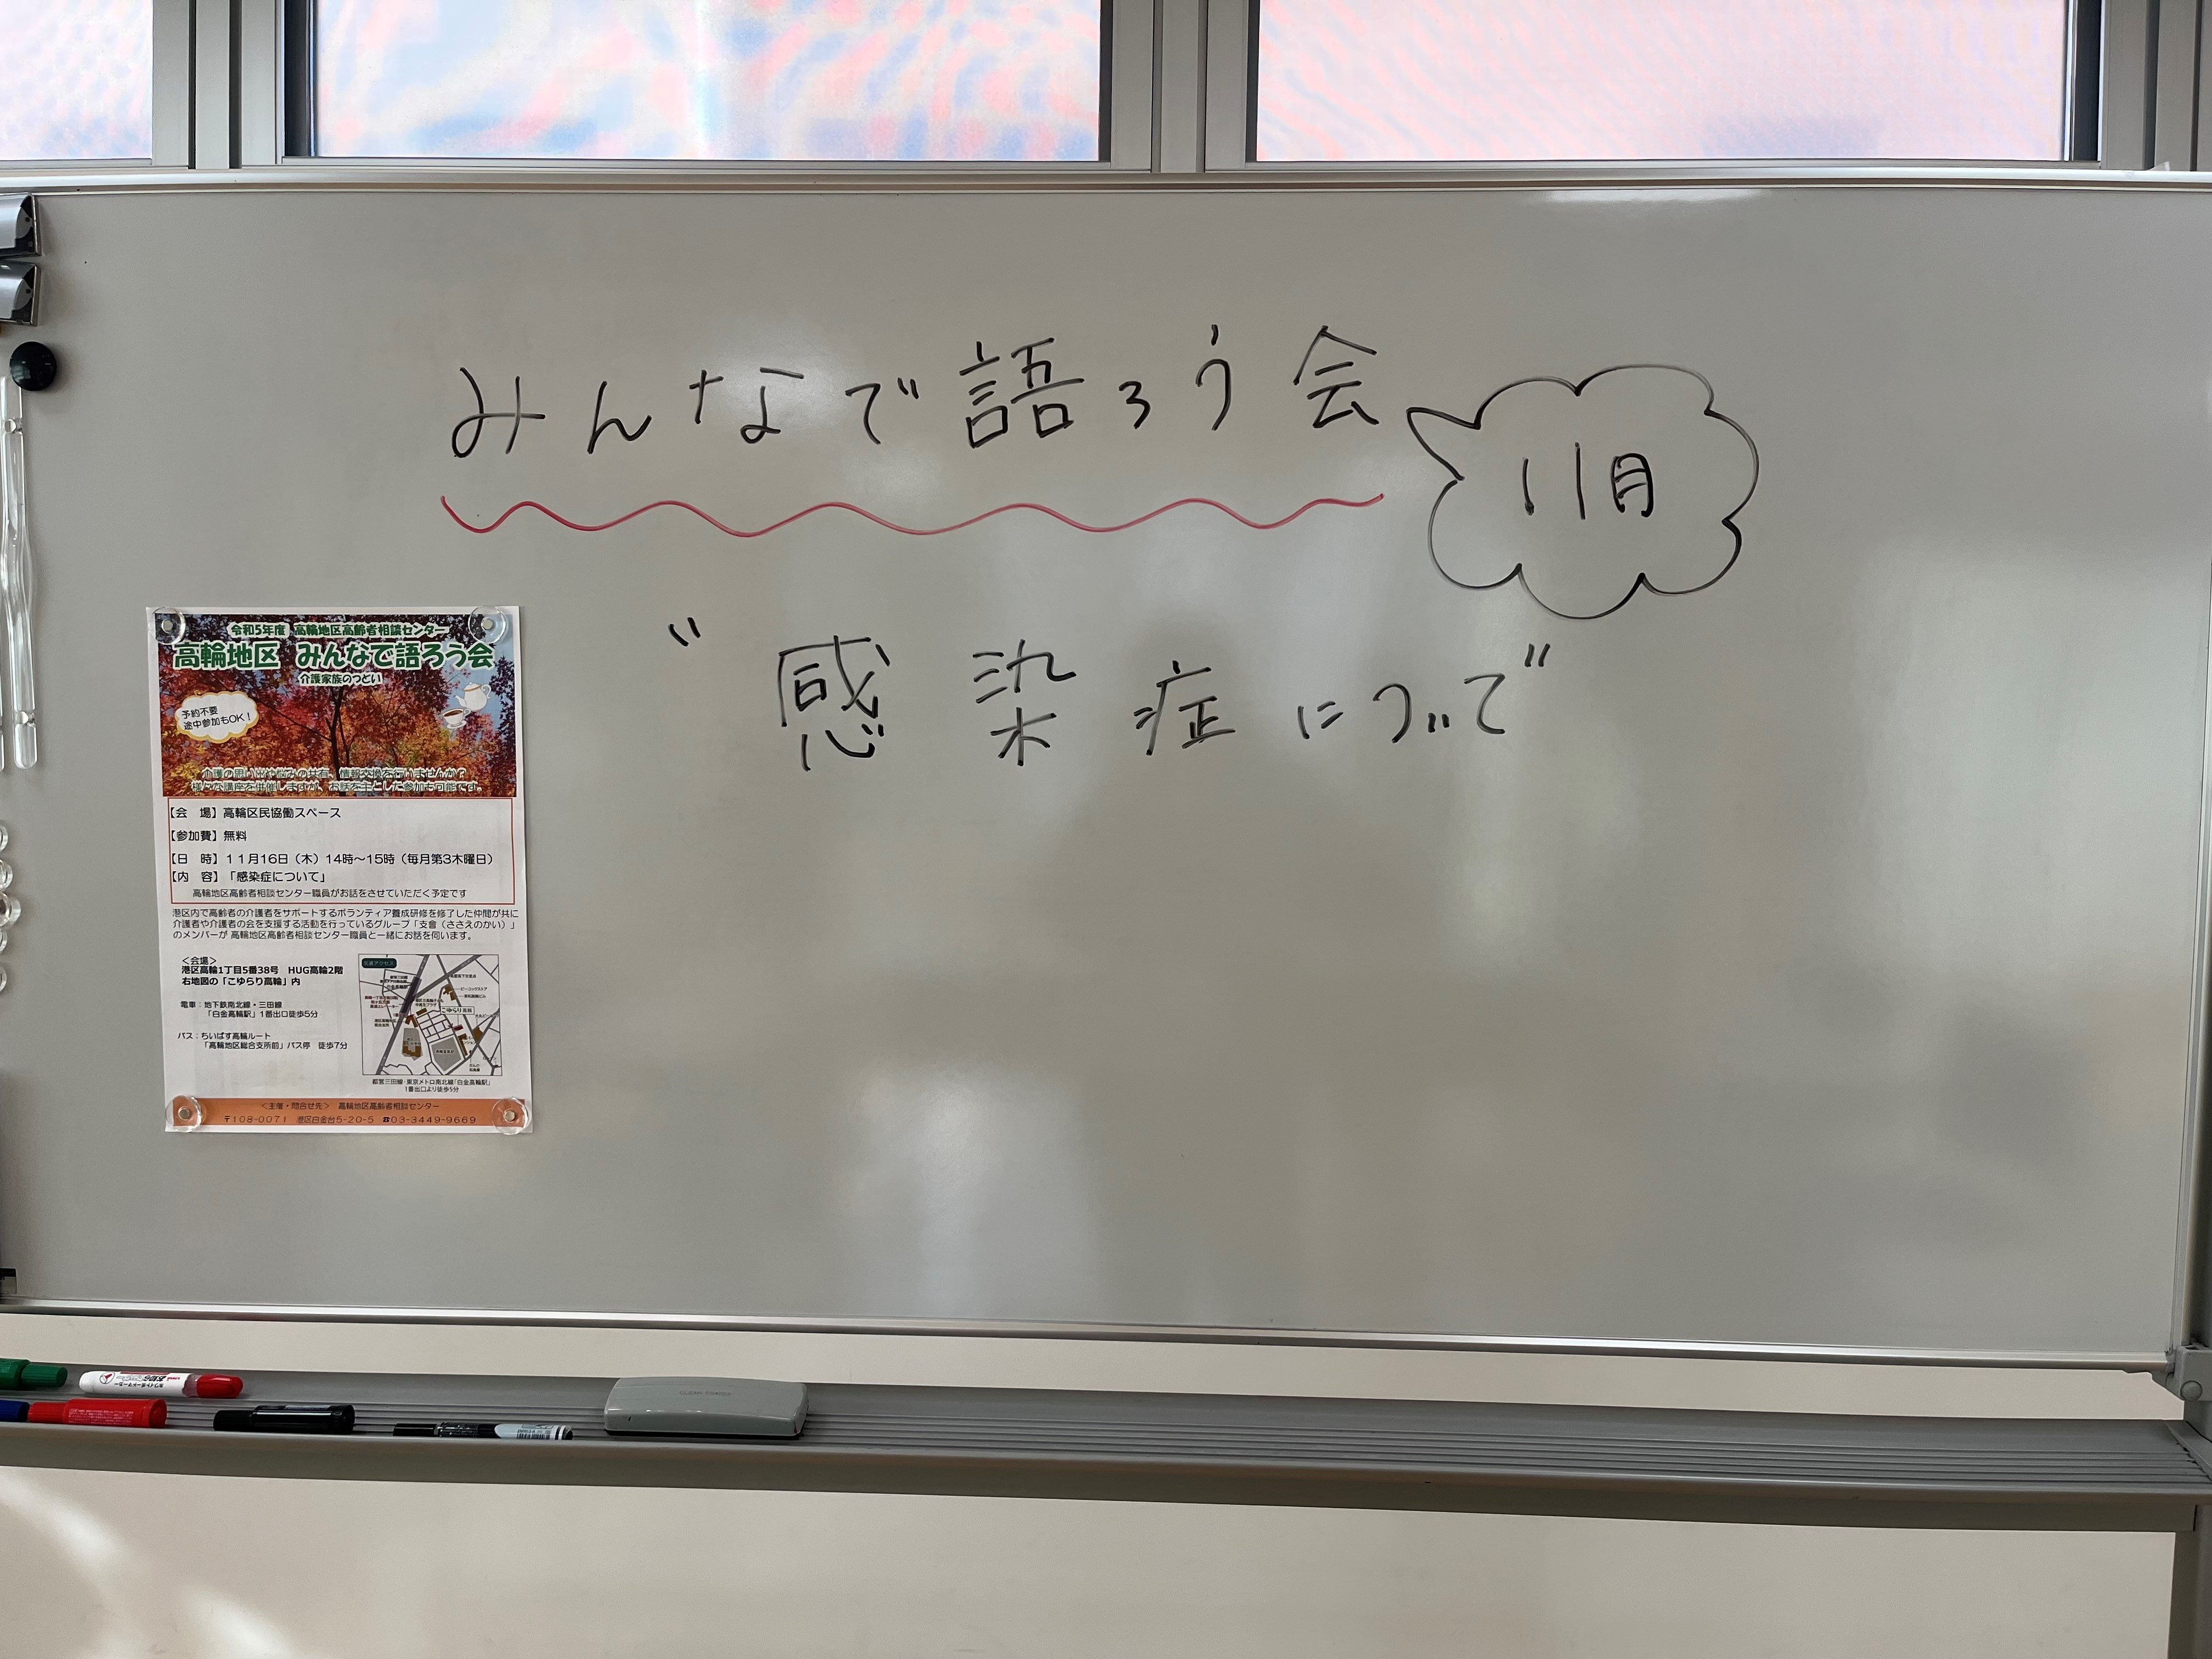 みんなで語ろう会
11月
“感染症について”
令和5年度 高輪地区高齢者相談センター
高輪地区 みんなで語ろう会
介護家族のつどい
予約不要
途中参加もOK！
介護の思い出や悩みの共有、情報交換を行いませんか？
様々な講座を併催しますが、お話を主とした参加も可能です。
【会 場】高輪区民協働スペース
【参加費】無料
【日 時】11月16日（木）14時～15時（毎月第3木曜日）
【内 容】「感染症について」
高輪地区高齢者相談センター職員がお話をさせていただく予定です
港区内で高齢者の介護者をサポートするボランティア養成研修を修了した仲間が共に
介護者や介護者の会を支援する活動を行っているグループ「支會（ささえのかい）」
のメンバーが 高輪地区高齢者相談センター職員と一緒にお話を伺います。
＜会場＞
港区高輪1丁目5番38号 HUG高輪2階
右地図の「こゆらり高輪」内
電車：地下鉄南北線・三田線
「白金高輪駅」1番出口徒歩5分
バス：ちぃばす高輪ルート
「高輪地区総合支所前」バス停 徒歩7分
交通アクセス
こゆらり高輪
都営三田線・東京メトロ南北線「白金高輪駅」
1番出口より徒歩5分
＜主催・問合せ先＞ 高輪地区高齢者相談センター
〒108-0071 港区白金台5-20-5 ☎03-3449-9669